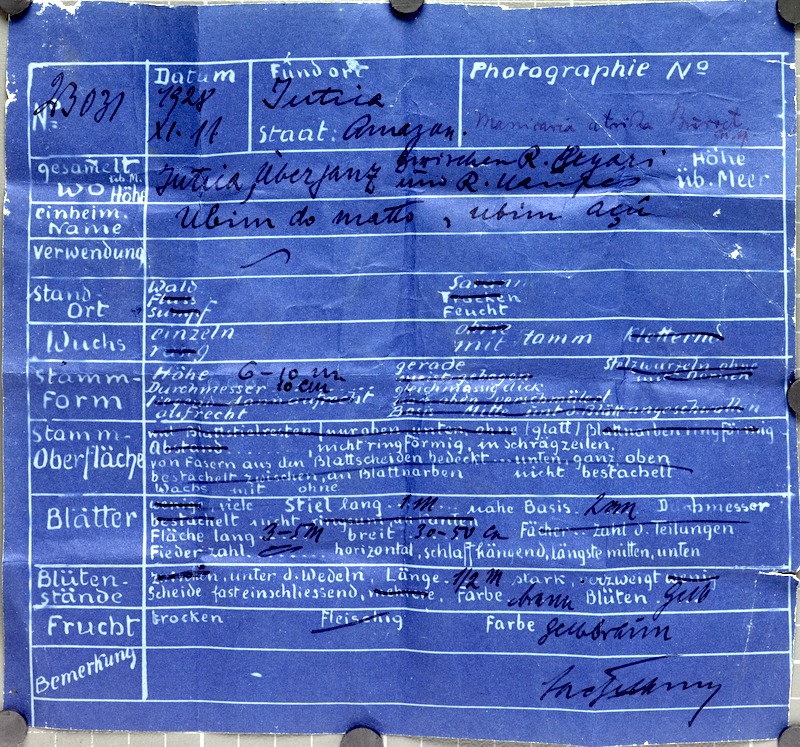 23031
Nº
Datum
1928
XI. 11
Fundort
Jutica
Staat: Amazon.
Photographie Nº
Manicaria atricha Burret
gesamelt
wo üb.M. Höhe
Jutica Übergang zwischen R.
und R.
Höhe
üb. Meer
einheim.
Name
Ubim do matto, ubim açú
Verwendung
Stand
Ort
Wald
Fluss
Sumpf
Feucht
Wuchs
einzeln
mit stamm Kletternd
Stamm-
Form
Höhe 6-10 m gerade
Durchmesser 10 cm gleichmässig dick
aufrecht
Stelzwurzeln ohne
mit Dornen
Basis Mitte angeschwollen
Stamm-
Oberfläche
mit Blattstielresten, nur oben unten, ohne (glatt) Blattnarben ringförmig
Abstand ......, nicht ringförmig, in Schrägzeilen,
von Fasern aus den Blattscheiden bedeckt ... unten, ganz oben
bestachelt zwischen, an Blattnarben nicht bestachelt
Wachs mit ohne
Blätter
viele Stiel lang 1 m nahe Basis 2 cm Durchmesser
bestachelt nicht
Fläche lang 3-5 m breit 30-50 cm Fächer ... zahl d. Teilungen
Fiederzahl ...... horizontal, schlaff hängend, längste mitten, unten
Blüten-
stände
zwischen, unter d. Wedeln, Länge 1/2 m stark, verzweigt
Scheide fast einschliessend, Farbe braun Blüten Gelb
Frucht
trocken Fleischig Farbe gelbbraun
Bemerkung